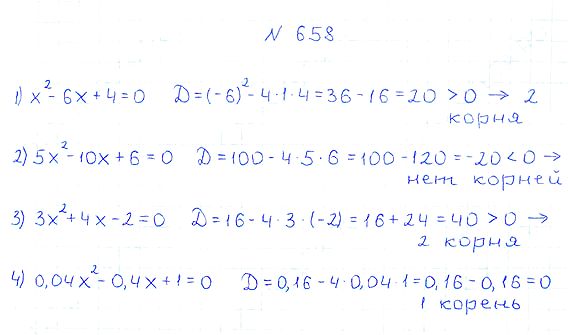 № 658
1) x² - 6x + 4 = 0 D = (-6)² - 4·1·4 = 36 - 16 = 20 > 0 → 2
корня
2) 5x² - 10x + 6 = 0 D = 100 - 4·5·6 = 100 - 120 = -20 < 0 →
нет корней
3) 3x² + 4x - 2 = 0 D = 16 - 4·3·(-2) = 16 + 24 = 40 > 0 →
2 корня
4) 0,04x² - 0,4x + 1 = 0 D = 0,16 - 4·0,04·1 = 0,16 - 0,16 = 0
1 корень